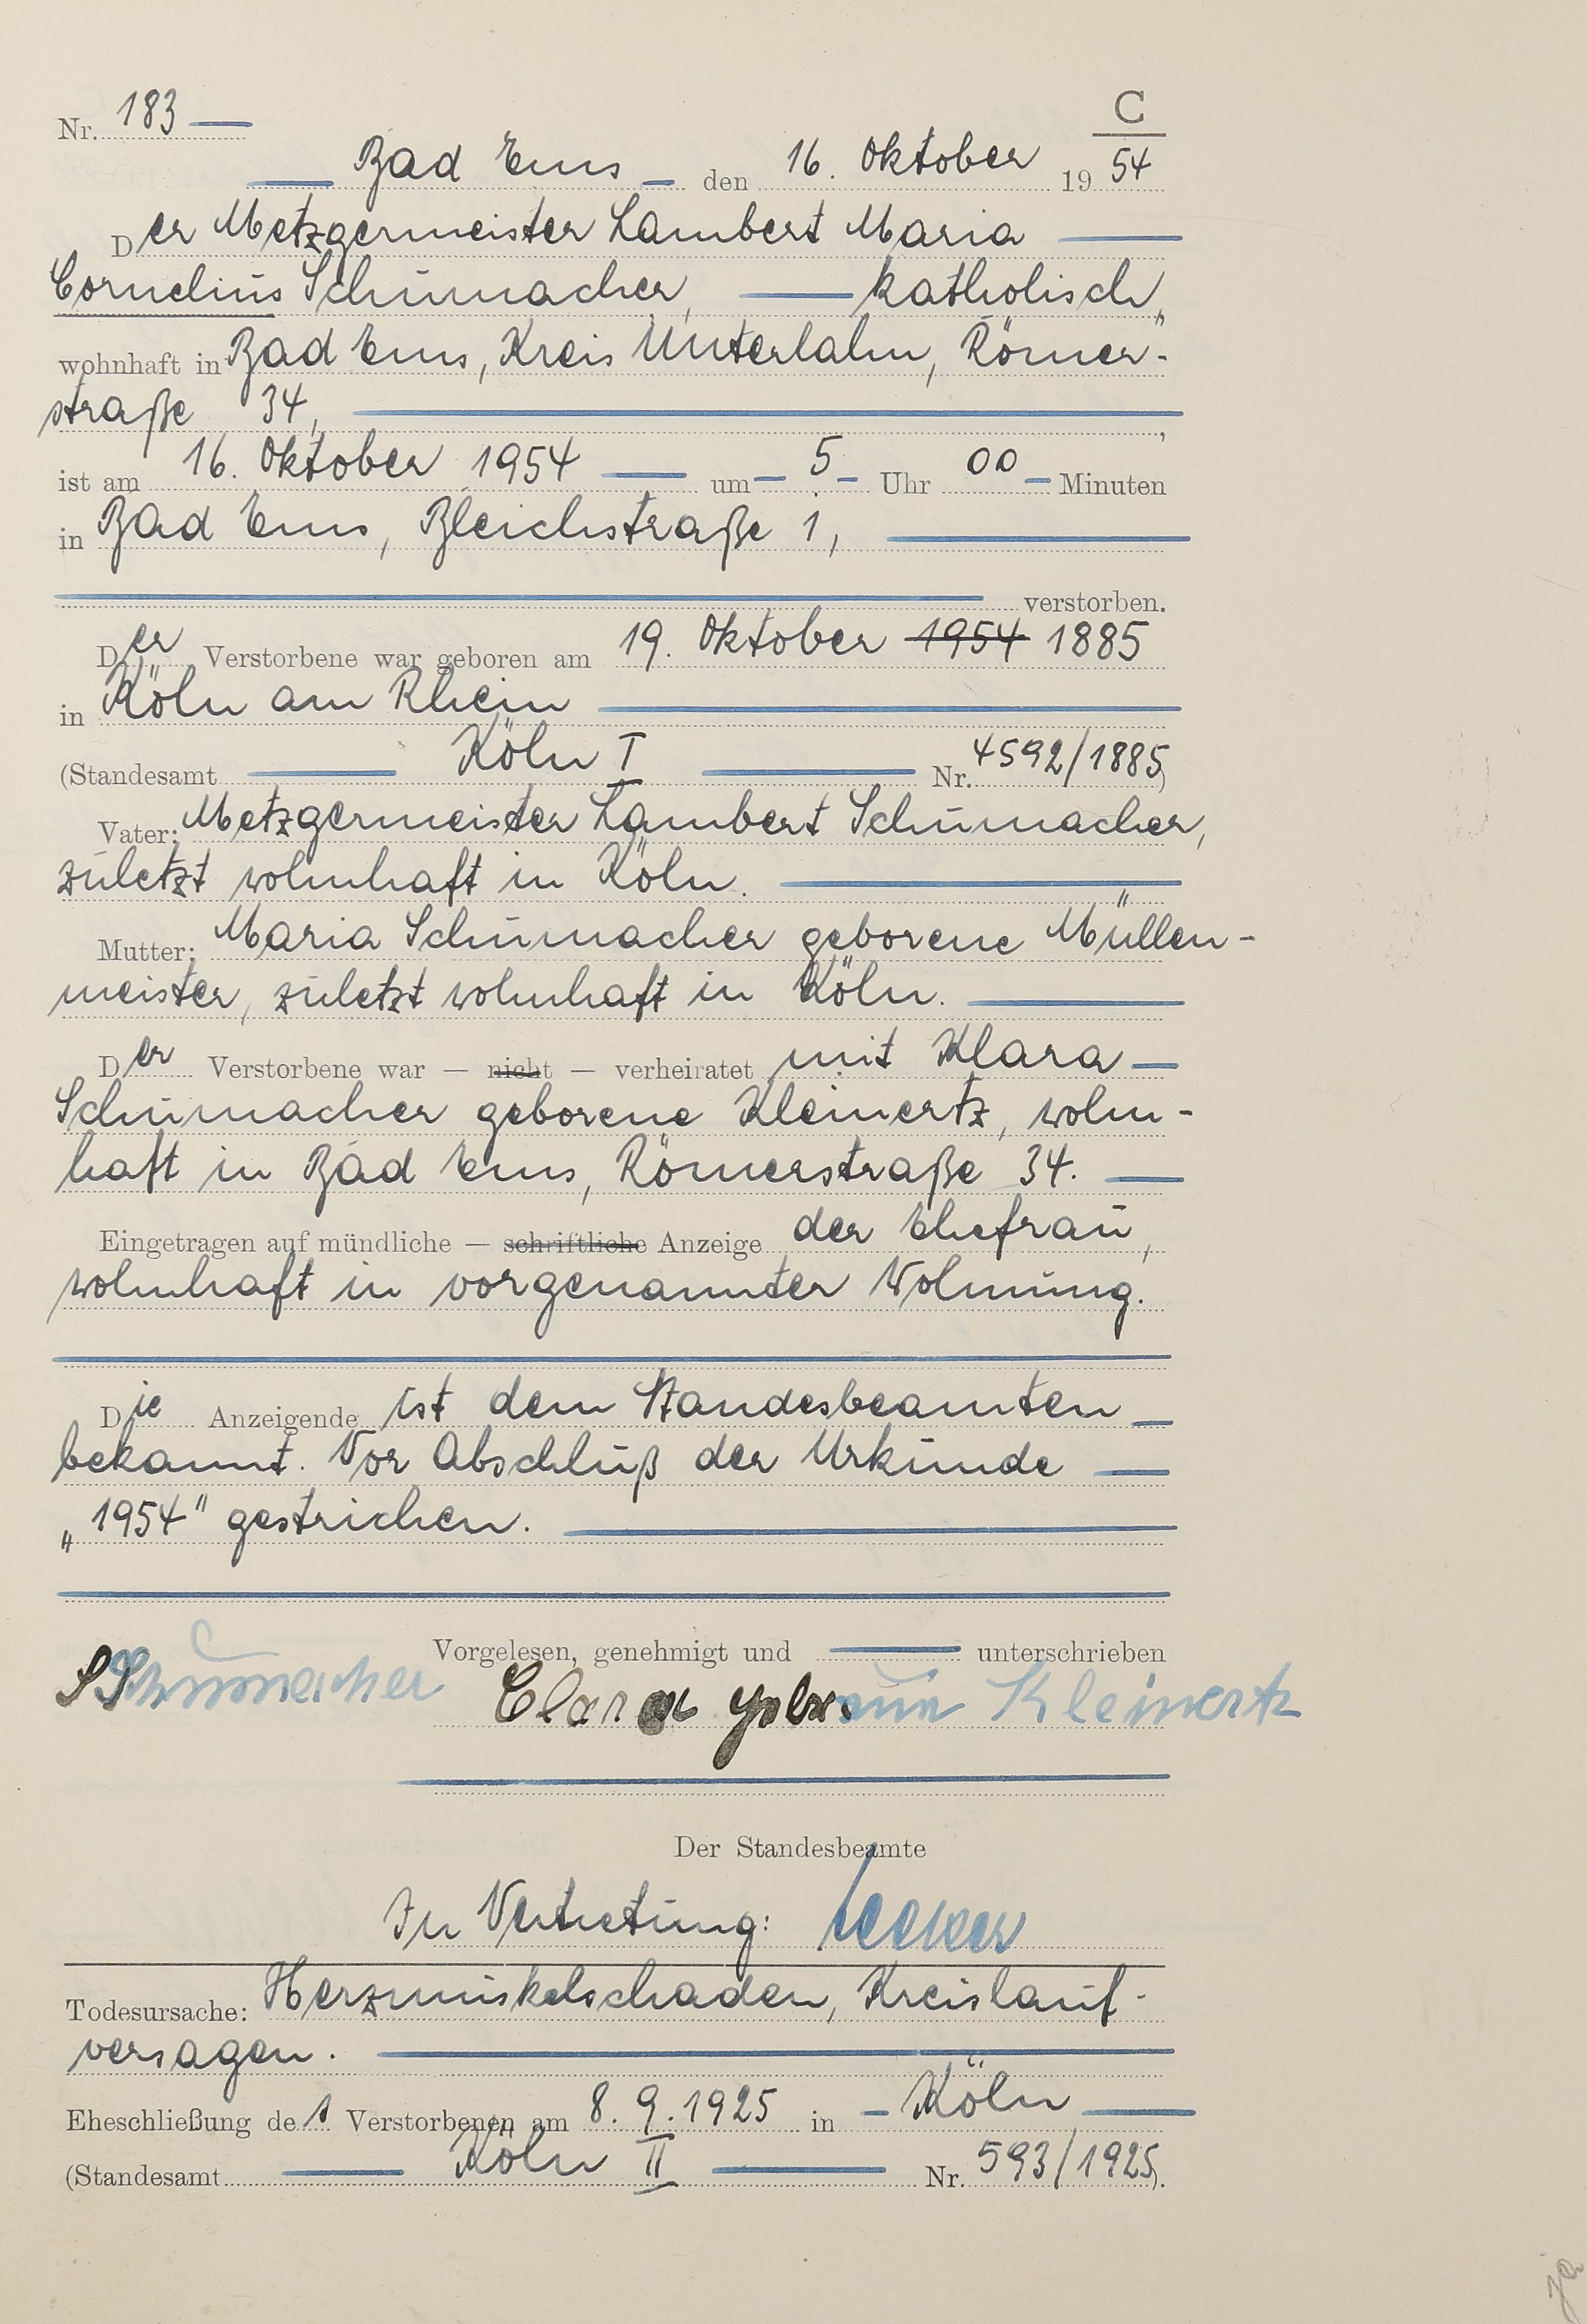 C
Nr. 183 —
Bad Ems — den 16. Oktober 19 54
Der Metzgermeister Lambert Maria —
Cornelius Schumacher, — katholisch,
wohnhaft in Bad Ems, Kreis Unterlahn, Römer-
straße 34, ,
ist am 16. Oktober 1954 — um — 5 — Uhr 00 — Minuten
in Bad Ems, Bleichstraße 1,
verstorben.
Der Verstorbene war geboren am 19. Oktober 1954 1885
in Köln am Rhein
(Standesamt Köln I Nr. 4592/1885)
Vater: Metzgermeister Lambert Schumacher,
zuletzt wohnhaft in Köln.
Mutter: Maria Schumacher geborene Müllen-
meister, zuletzt wohnhaft in Köln.
Der Verstorbene war — nicht — verheiratet mit Klara —
Schumacher geborene Kleinertz, wohn-
haft in Bad Ems, Römerstraße 34. —
Eingetragen auf mündliche — schriftliche Anzeige der Ehefrau,
wohnhaft in vorgenannter Wohnung.
Die Anzeigende ist dem Standesbeamten —
bekannt. Vor Abschluß der Urkunde —
„1954" gestrichen.
Vorgelesen, genehmigt und — unterschrieben
Schumacher Clara Kleinertz
Der Standesbeamte
In Vertretung:
Todesursache: Herzmuskelschaden, Kreislauf-
versagen.
Eheschließung des Verstorbenen am 8. 9. 1925 in — Köln —
(Standesamt Köln II Nr. 593/1925).
ja